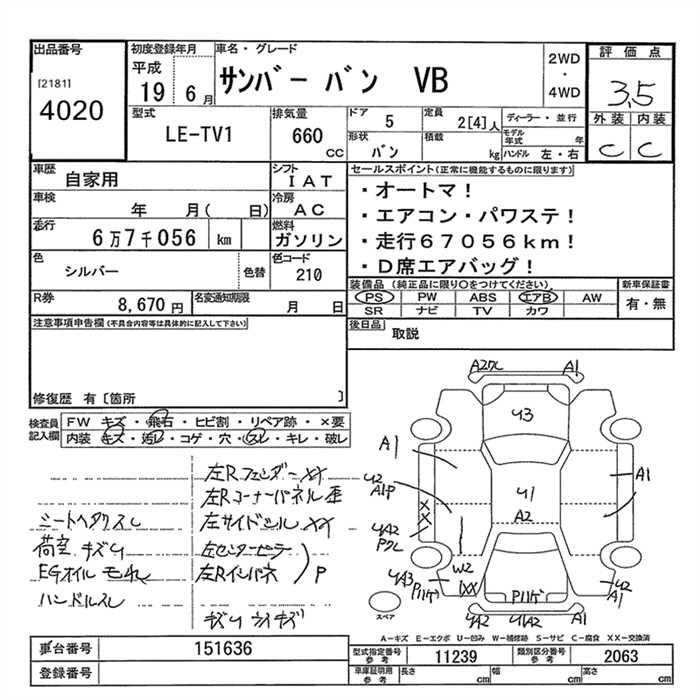 出品番号
[2181]
4020
初度登録年月
平成
19 6月
車名・グレード
サンバー バン VB
2WD
・
4WD
評価点
3.5
外装 内装
C C
型式
LE-TV1
排気量
660
cc
ドア
5
定員
2[4]人
ディーラー・並行
形状
バン
積載
kg
モデル年式
年
ハンドル 左・右
車歴
自家用
シフト
IAT
車検
年 月( 日)
冷房
AC
走行
6万7千056 km
燃料
ガソリン
色
シルバー
色替
色コード
210
R券
8,670円
名変通知期限
月 日
セールスポイント(正常に機能するものに限ります)
・オートマ！
・エアコン・パワステ！
・走行67056km！
・D席エアバッグ！
装備品(純正品に限り○をつけてください)
PS PW ABS エアB AW
SR ナビ TV カワ
新車保証書
有・無
後日品
取説
注意事項申告欄(不具合内容等は具体的に記入して下さい)
修復歴 有〔箇所 〕
検査員
記入欄
FW キズ・飛石・ヒビ割・リペア跡・×要
内装 キズ・汚レ・コゲ・穴・スレ・キレ・破レ
左Rフェンダー XX
左Rコーナーパネル
シートヘタクスレ
左サイドシル XX
荷室 キズU
左センターピラー
EGオイルモレ
左Rインパネ
P
ハンドルスレ
A2クレ A1
U3
A1
U2
A1P
U1
A2
A1
X
X
UA2
Pクレ
W2
XX
UA3
Pハゲ
Pハゲ
U2
A1
UA2 U1A2 A1
スペア
A−キズ E−エクボ U−凹み W−補修跡 S−サビ C−腐食 XX−交換済
車台番号
151636
登録番号
型式指定番号
参考
11239
類別区分番号
参考
2063
車庫証明用
参考
長さ cm
幅 cm
高さ cm